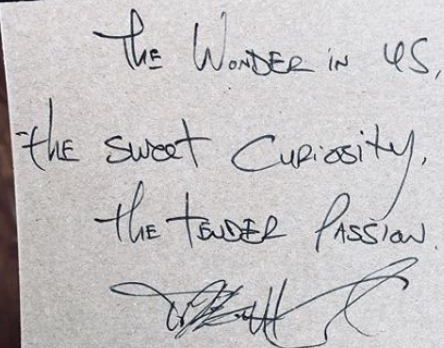 The Wonder in us,
the sweet Curiosity,
the tender Passion.